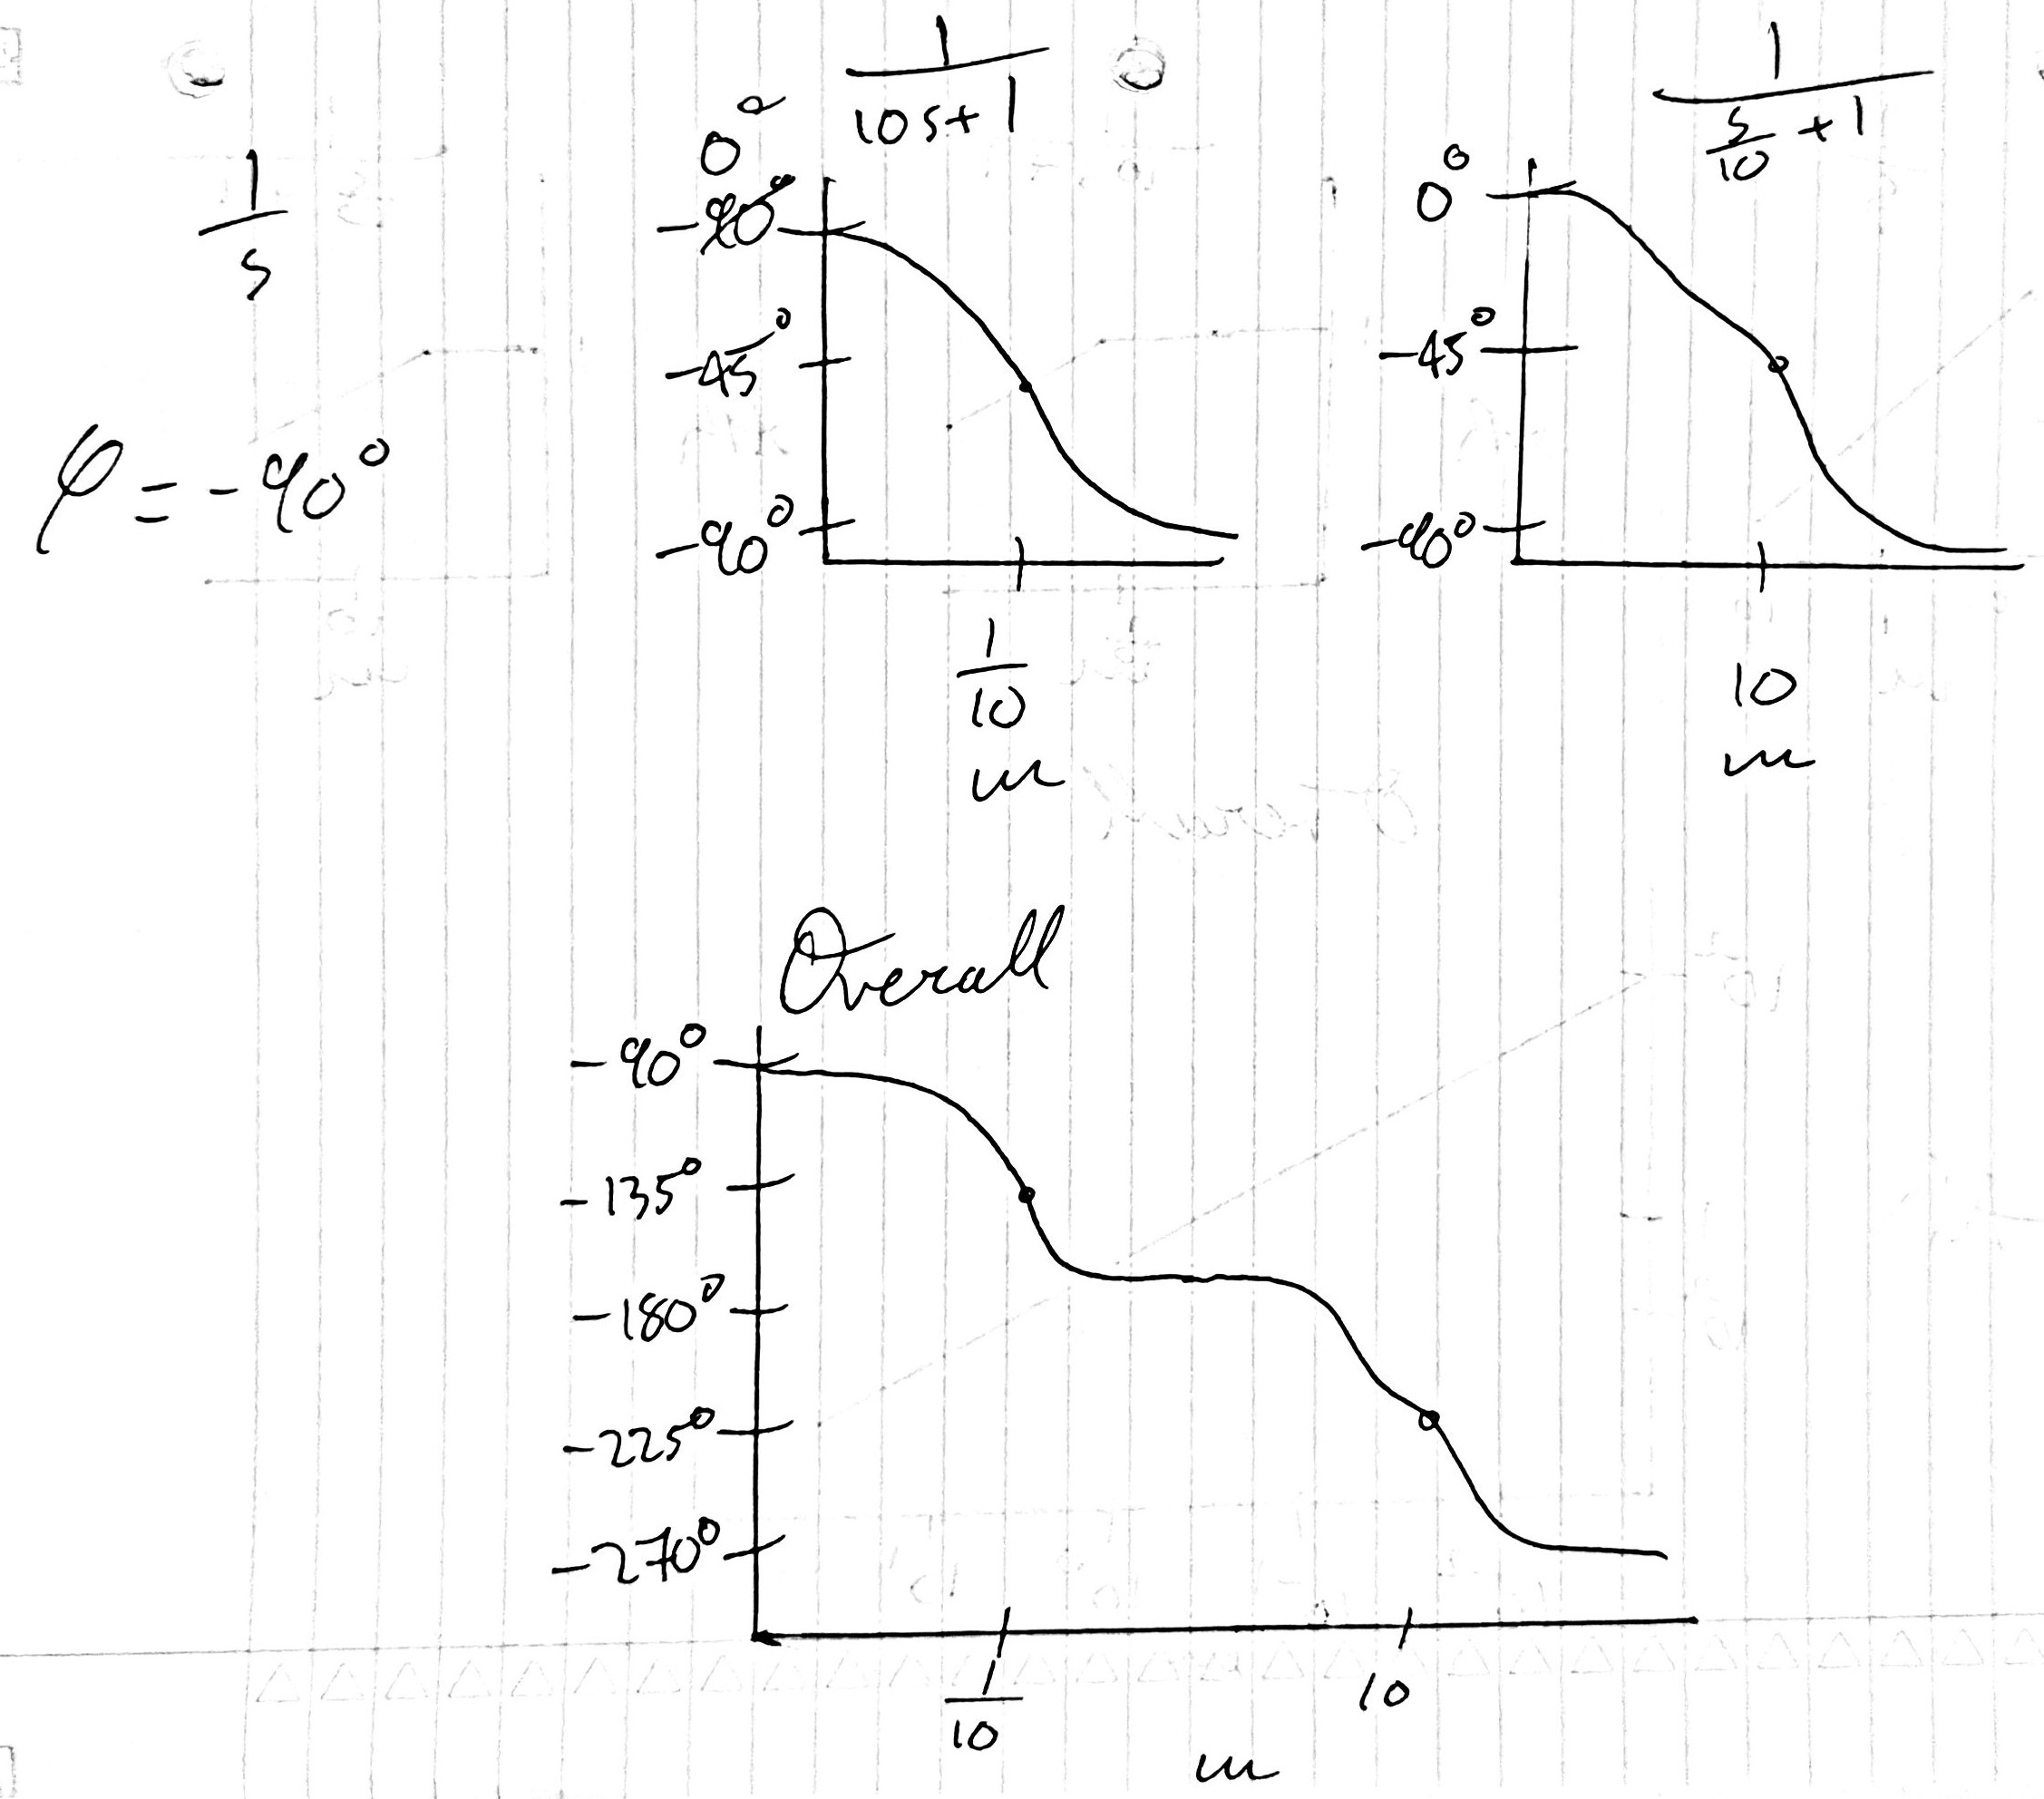 1/s
φ = -90°
1/(10s+1)
0°
-90°
-45°
-90°
1/10
ω
1/(s/10 + 1)
0°
-45°
-90°
10
ω
Overall
-90°
-135°
-180°
-225°
-270°
1/10
10
ω